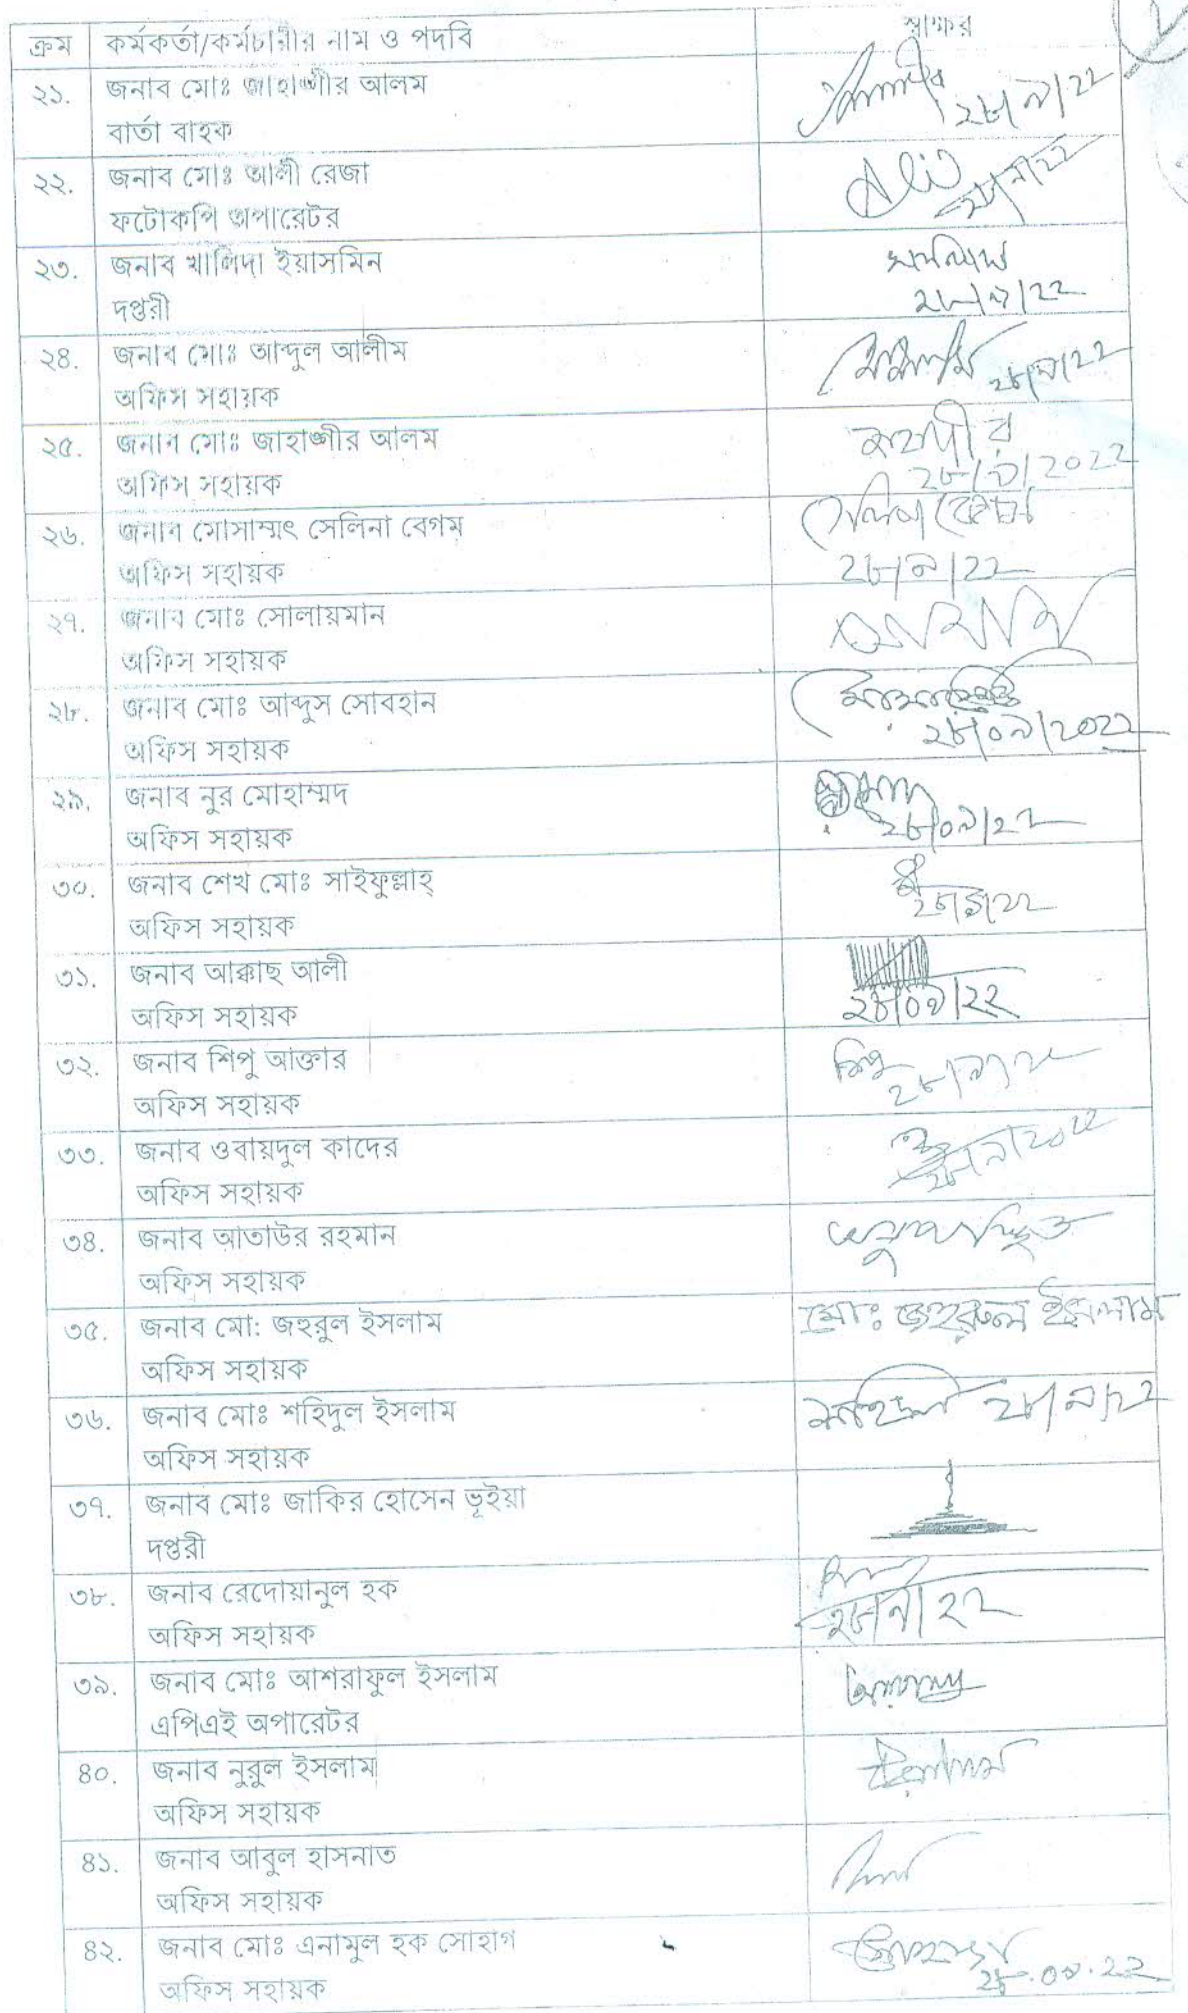 ক্রম কর্মকর্তা/কর্মচারীর নাম ও পদবি স্বাক্ষর
২১. জনাব মোঃ জাহাঙ্গীর আলম
বার্তা বাহক
২৮/৯/২২
২২. জনাব মোঃ আলী রেজা
ফটোকপি অপারেটর
Ali ২৮/৯/২২
২৩. জনাব খালিদা ইয়াসমিন
দপ্তরী
২৮/৯/২২
২৪. জনাব মোঃ আব্দুল আলীম
অফিস সহায়ক
২৮/৯/২২
২৫. জনাব মোঃ জাহাঙ্গীর আলম
অফিস সহায়ক
২৮/৯/২০২২
২৬. জনাব মোসাম্মৎ সেলিনা বেগম
অফিস সহায়ক
সেলিনা বেগম
২৮/৯/২২
২৭. জনাব মোঃ সোলায়মান
অফিস সহায়ক
২৮. জনাব মোঃ আব্দুস সোবহান
অফিস সহায়ক
২৮/০৯/২০২২
২৯. জনাব নুর মোহাম্মদ
অফিস সহায়ক
২৮/০৯/২২
৩০. জনাব শেখ মোঃ সাইফুল্লাহ্
অফিস সহায়ক
২৮/৯/২২
৩১. জনাব আক্কাছ আলী
অফিস সহায়ক
২৮/০৯/২২
৩২. জনাব শিপু আক্তার
অফিস সহায়ক
শিপু
২৮/৯/২২
৩৩. জনাব ওবায়দুল কাদের
অফিস সহায়ক
২৮/৯/২০২২
৩৪. জনাব আতাউর রহমান
অফিস সহায়ক
অনুপস্থিত
৩৫. জনাব মো: জহুরুল ইসলাম
অফিস সহায়ক
মোঃ জহুরুল ইসলাম
৩৬. জনাব মোঃ শহিদুল ইসলাম
অফিস সহায়ক
শহিদুল ২৮/৯/২২
৩৭. জনাব মোঃ জাকির হোসেন ভূইয়া
দপ্তরী
৩৮. জনাব রেদোয়ানুল হক
অফিস সহায়ক
২৮/৯/২২
৩৯. জনাব মোঃ আশরাফুল ইসলাম
এপিএই অপারেটর
৪০. জনাব নুরুল ইসলাম
অফিস সহায়ক
৪১. জনাব আবুল হাসনাত
অফিস সহায়ক
৪২. জনাব মোঃ এনামুল হক সোহাগ
অফিস সহায়ক
২৮.০৯.২২